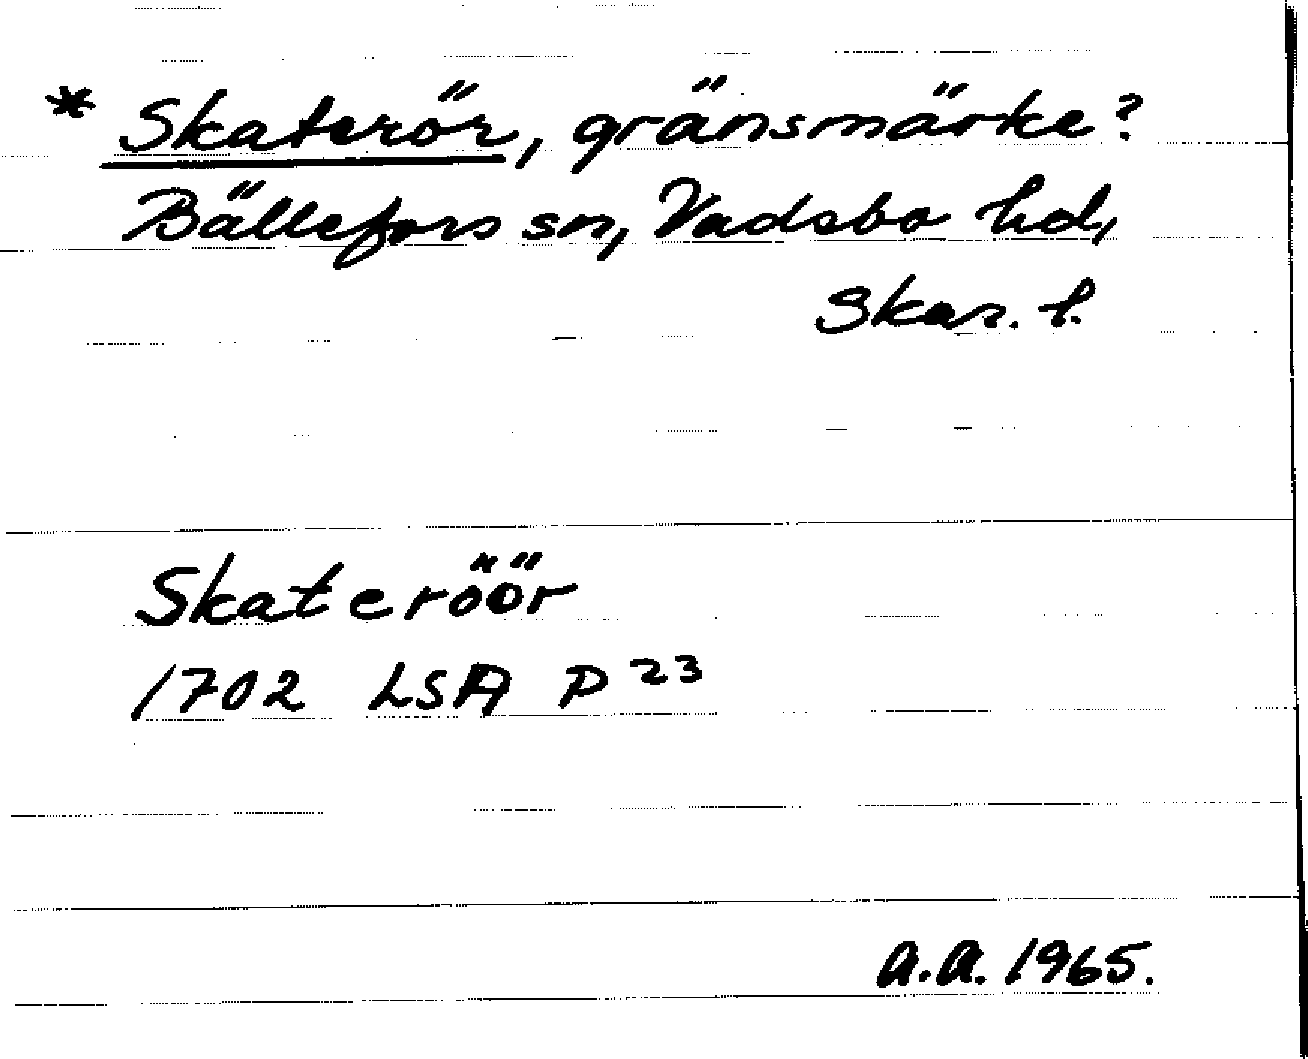 * Skaterör, gränsmärke?
Bällefors sn, Vadsbo hd,
Skar. l.
Skateröör
1702 LSA P 23
a.a. 1965.